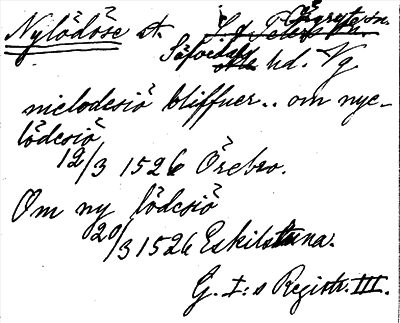 Nylödöse st. Örgryte sn.
Säfvedals hd. Vg
nielodesiö bliffuer.. om nye-
lödesiö
12/3 1526 Örebro.
Om ny lödesiö
20/3 1526 Eskilstuna.
G. I:s Registr. III.